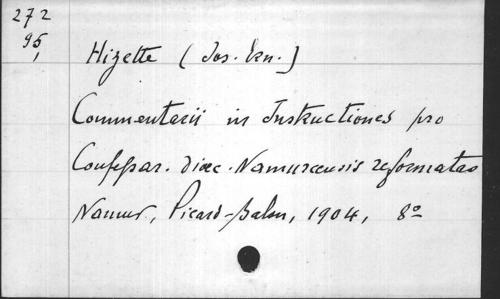 272
95,
Hizette (Jos. Ern.)
Commentarii in Instructiones pro
Confessar. diœc. Namurcensis reformatas
Namur, Picard-Balon, 1904, 8º